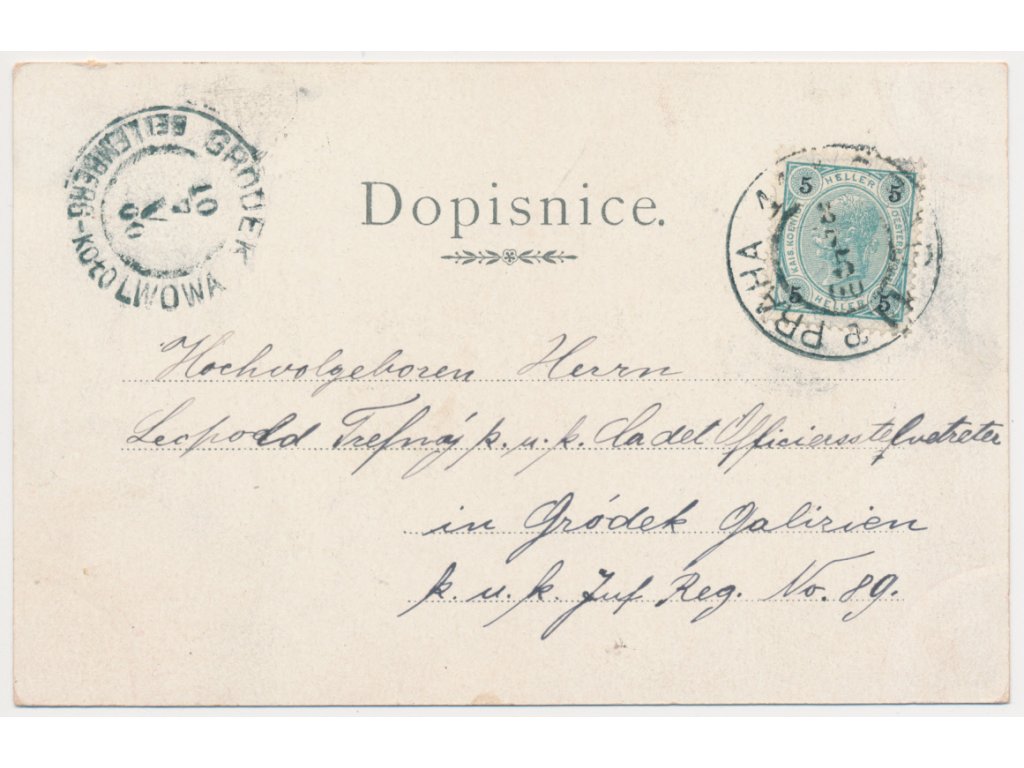 GRODEK
BEI LEMBERG-KOŁO LWOWA
10
4
00
Dopisnice.
PRAHA
5 HELLER 5
KAIS. KOEN.
5 HELLER 5
Hochvolgeboren Herrn
Leopold Trefnáj k. u. k. Cadet Officiersstelvetreter
in Gródek Galizien
k. u. k. Inf Reg. No. 89.